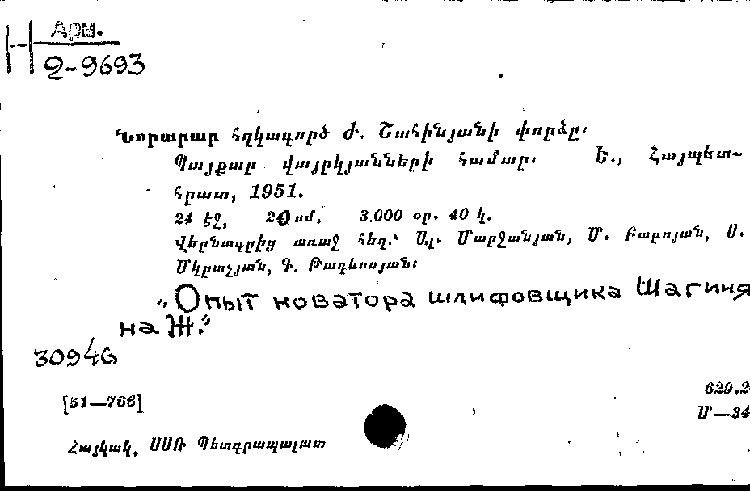 Арм.
Զ-9693
Նորարար հղկագործ Ժ. Շահինյանի փորձը։
Պայքար վայրկյանների համար։ Ե., Հայպետ-
հրատ, 1951.
24 էջ, 20 սմ. 3.000 օր. 40 կ.
Վերնագրից առաջ հեղ.՝ Ս. Մարջանյան, Մ. Բաբոյան, Ս.
Մկրտչյան, Գ. Թադևոսյան։
„Опыт новатора шлифовщика Шагиня
на Ж.“
30946
[51—766] 629.2
Մ—34
Հայկակ. ՍՍՌ Պետգրապալատ